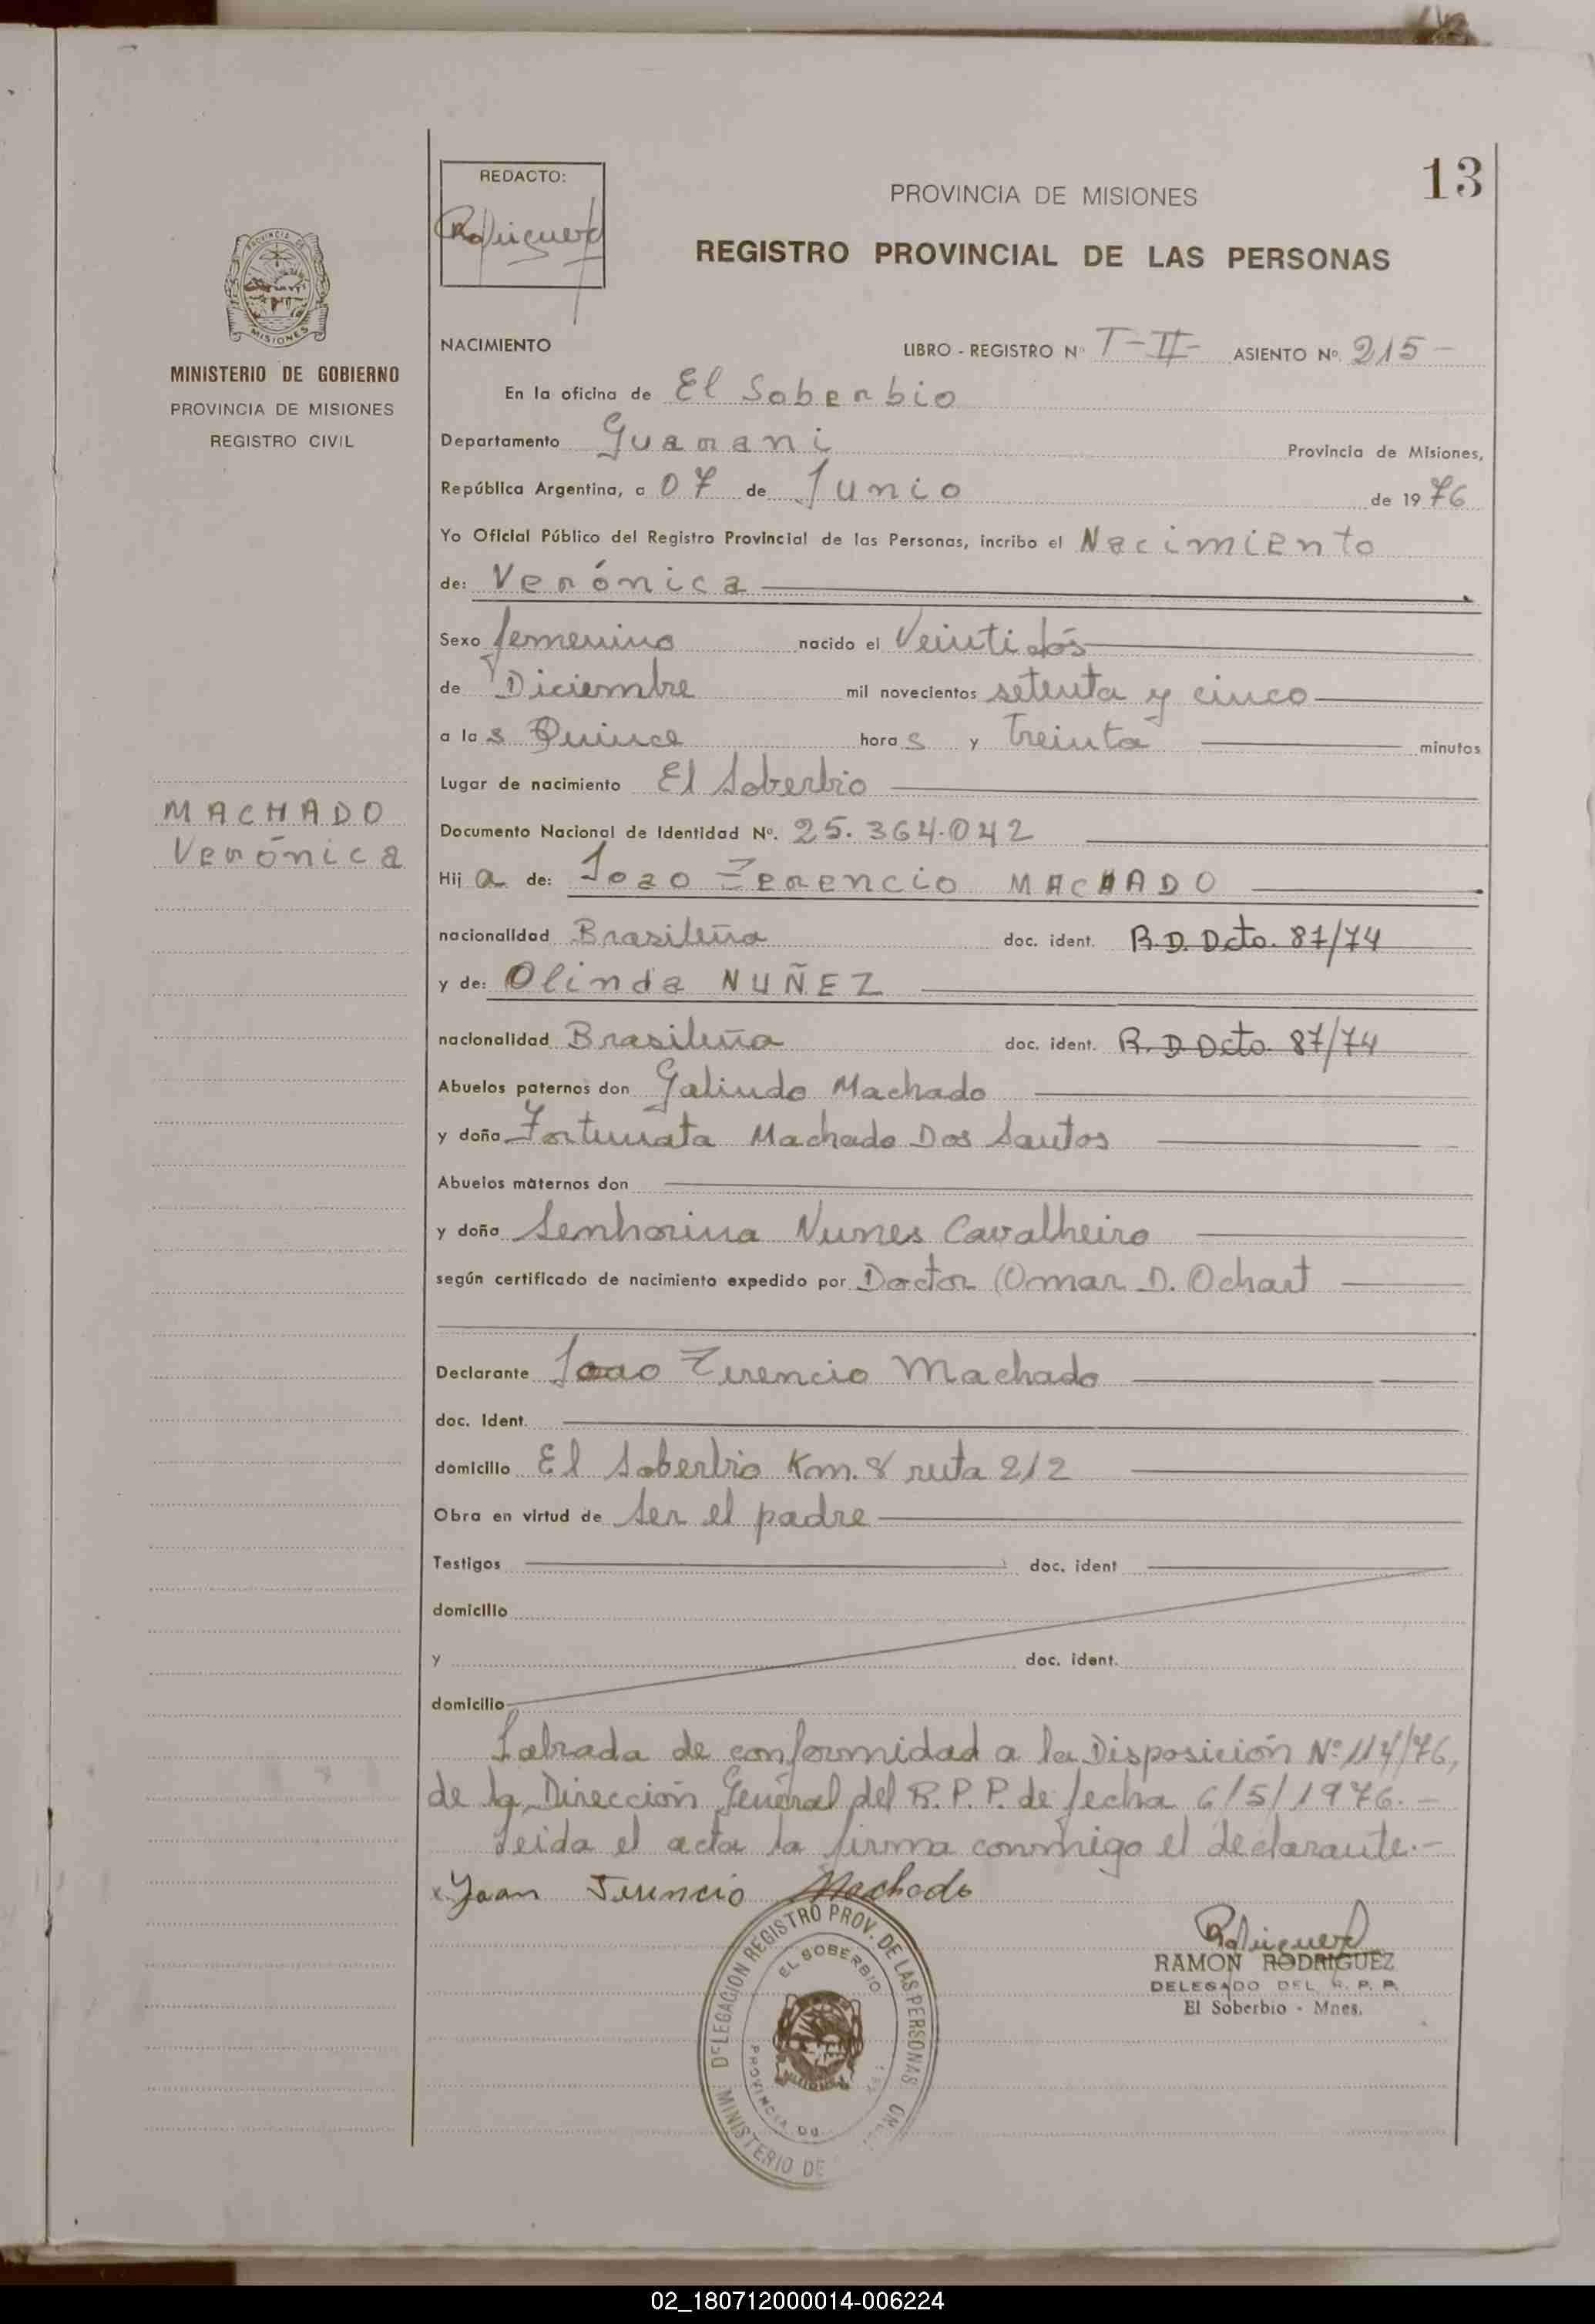 13
REDACTO:
PROVINCIA DE MISIONES
REGISTRO PROVINCIAL DE LAS PERSONAS
MISIONES
MINISTERIO DE GOBIERNO
PROVINCIA DE MISIONES
REGISTRO CIVIL
MACHADO
Verónica
NACIMIENTO LIBRO - REGISTRO Nº T-II- ASIENTO Nº. 215-
En la oficina de El Soberbio
Departamento Guarani Provincia de Misiones,
República Argentina, a 07 de Junio de 1976
Yo Oficial Público del Registro Provincial de las Personas, incribo el Nacimiento
de: Verónica
Sexo femenino nacido el Veintidós
de Diciembre mil novecientos setenta y cinco
a las Quince horas y Treinta minutos
Lugar de nacimiento El Soberbio
Documento Nacional de Identidad Nº. 25.364.042
Hija de: Joao Terencio MACHADO
nacionalidad Brasileña doc. ident. R.D. Dcto. 87/74
y de: Olinda NUÑEZ
nacionalidad Brasileña doc. ident. R.D Dcto. 87/74
Abuelos paternos don Galindo Machado
y doña Fortunata Machado Dos Santos
Abuelos maternos don
y doña Senhorina Nunes Cavalheiro
según certificado de nacimiento expedido por Doctor Omar D. Ochart
Declarante Joao Terencio Machado
doc. Ident.
domicilio El Soberbio Km. 8 ruta 212
Obra en virtud de ser el padre
Testigos doc. ident
domicilio
y doc. ident.
domicilio
Labrada de conformidad a la Disposición Nº 114/76,
de la Dirección General del R.P.P. de fecha 6/5/1976.-
Leida el acta la firma conmigo el declarante.-
x Joan Terencio Machado
DELEGACION REGISTRO PROV. DE LAS PERSONAS
EL SOBERBIO
PROVINCIA DE
MINISTERIO DE
RAMON RODRIGUEZ
DELEGADO DEL R. P. P.
El Soberbio - Mnes.
02_180712000014-006224